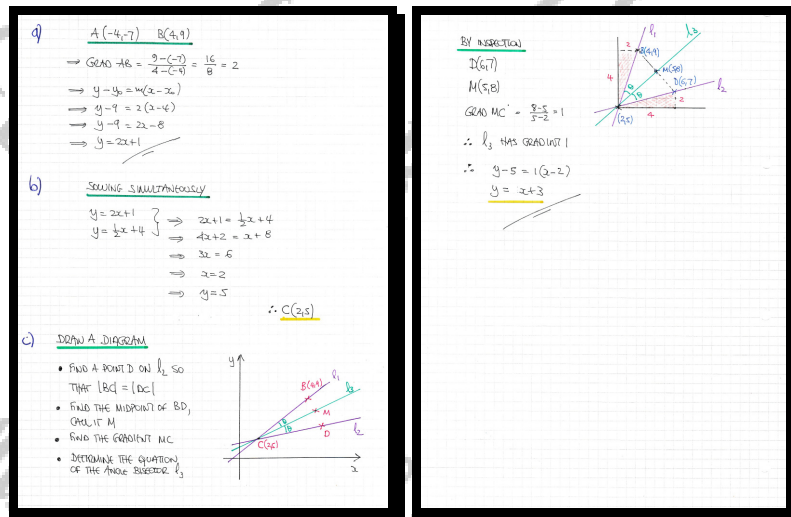 a)
A(-4,-7) B(4,9)
⇒ GRAD AB = 9-(-7)/4-(-4) = 16/8 = 2
⇒ y-y₀ = m(x-x₀)
⇒ y-9 = 2(x-4)
⇒ y-9 = 2x-8
⇒ y = 2x+1
b)
SOLVING SIMULTANEOUSLY
y = 2x+1
y = ½x+4
} ⇒ 2x+1 = ½x+4
⇒ 4x+2 = x+8
⇒ 3x = 6
⇒ x = 2
⇒ y = 5
∴ C(2,5)
c)
DRAW A DIAGRAM
• FIND A POINT D ON l₂ SO
THAT |BC| = |DC|
• FIND THE MIDPOINT OF BD,
CALL IT M
• FIND THE GRADIENT MC
• DETERMINE THE EQUATION
OF THE ANGLE BISECTOR l₃
y
l₁
B(4,9)
l₃
M
θ
θ
l₂
D
C(2,5)
x
BY INSPECTION
D(6,7)
M(5,8)
GRAD MC = 8-5/5-2 = 1
∴ l₃ HAS GRADIENT 1
∴ y-5 = 1(x-2)
y = x+3
l₁
l₃
2
B(4,9)
M(5,8)
4
D(6,7)
l₂
θ
θ
2
(2,5)
4